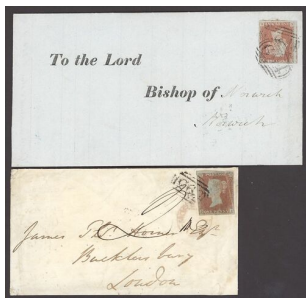 To the Lord
Bishop of Norwich
Norwich
James Thos Esqr
Bucklersbury
London